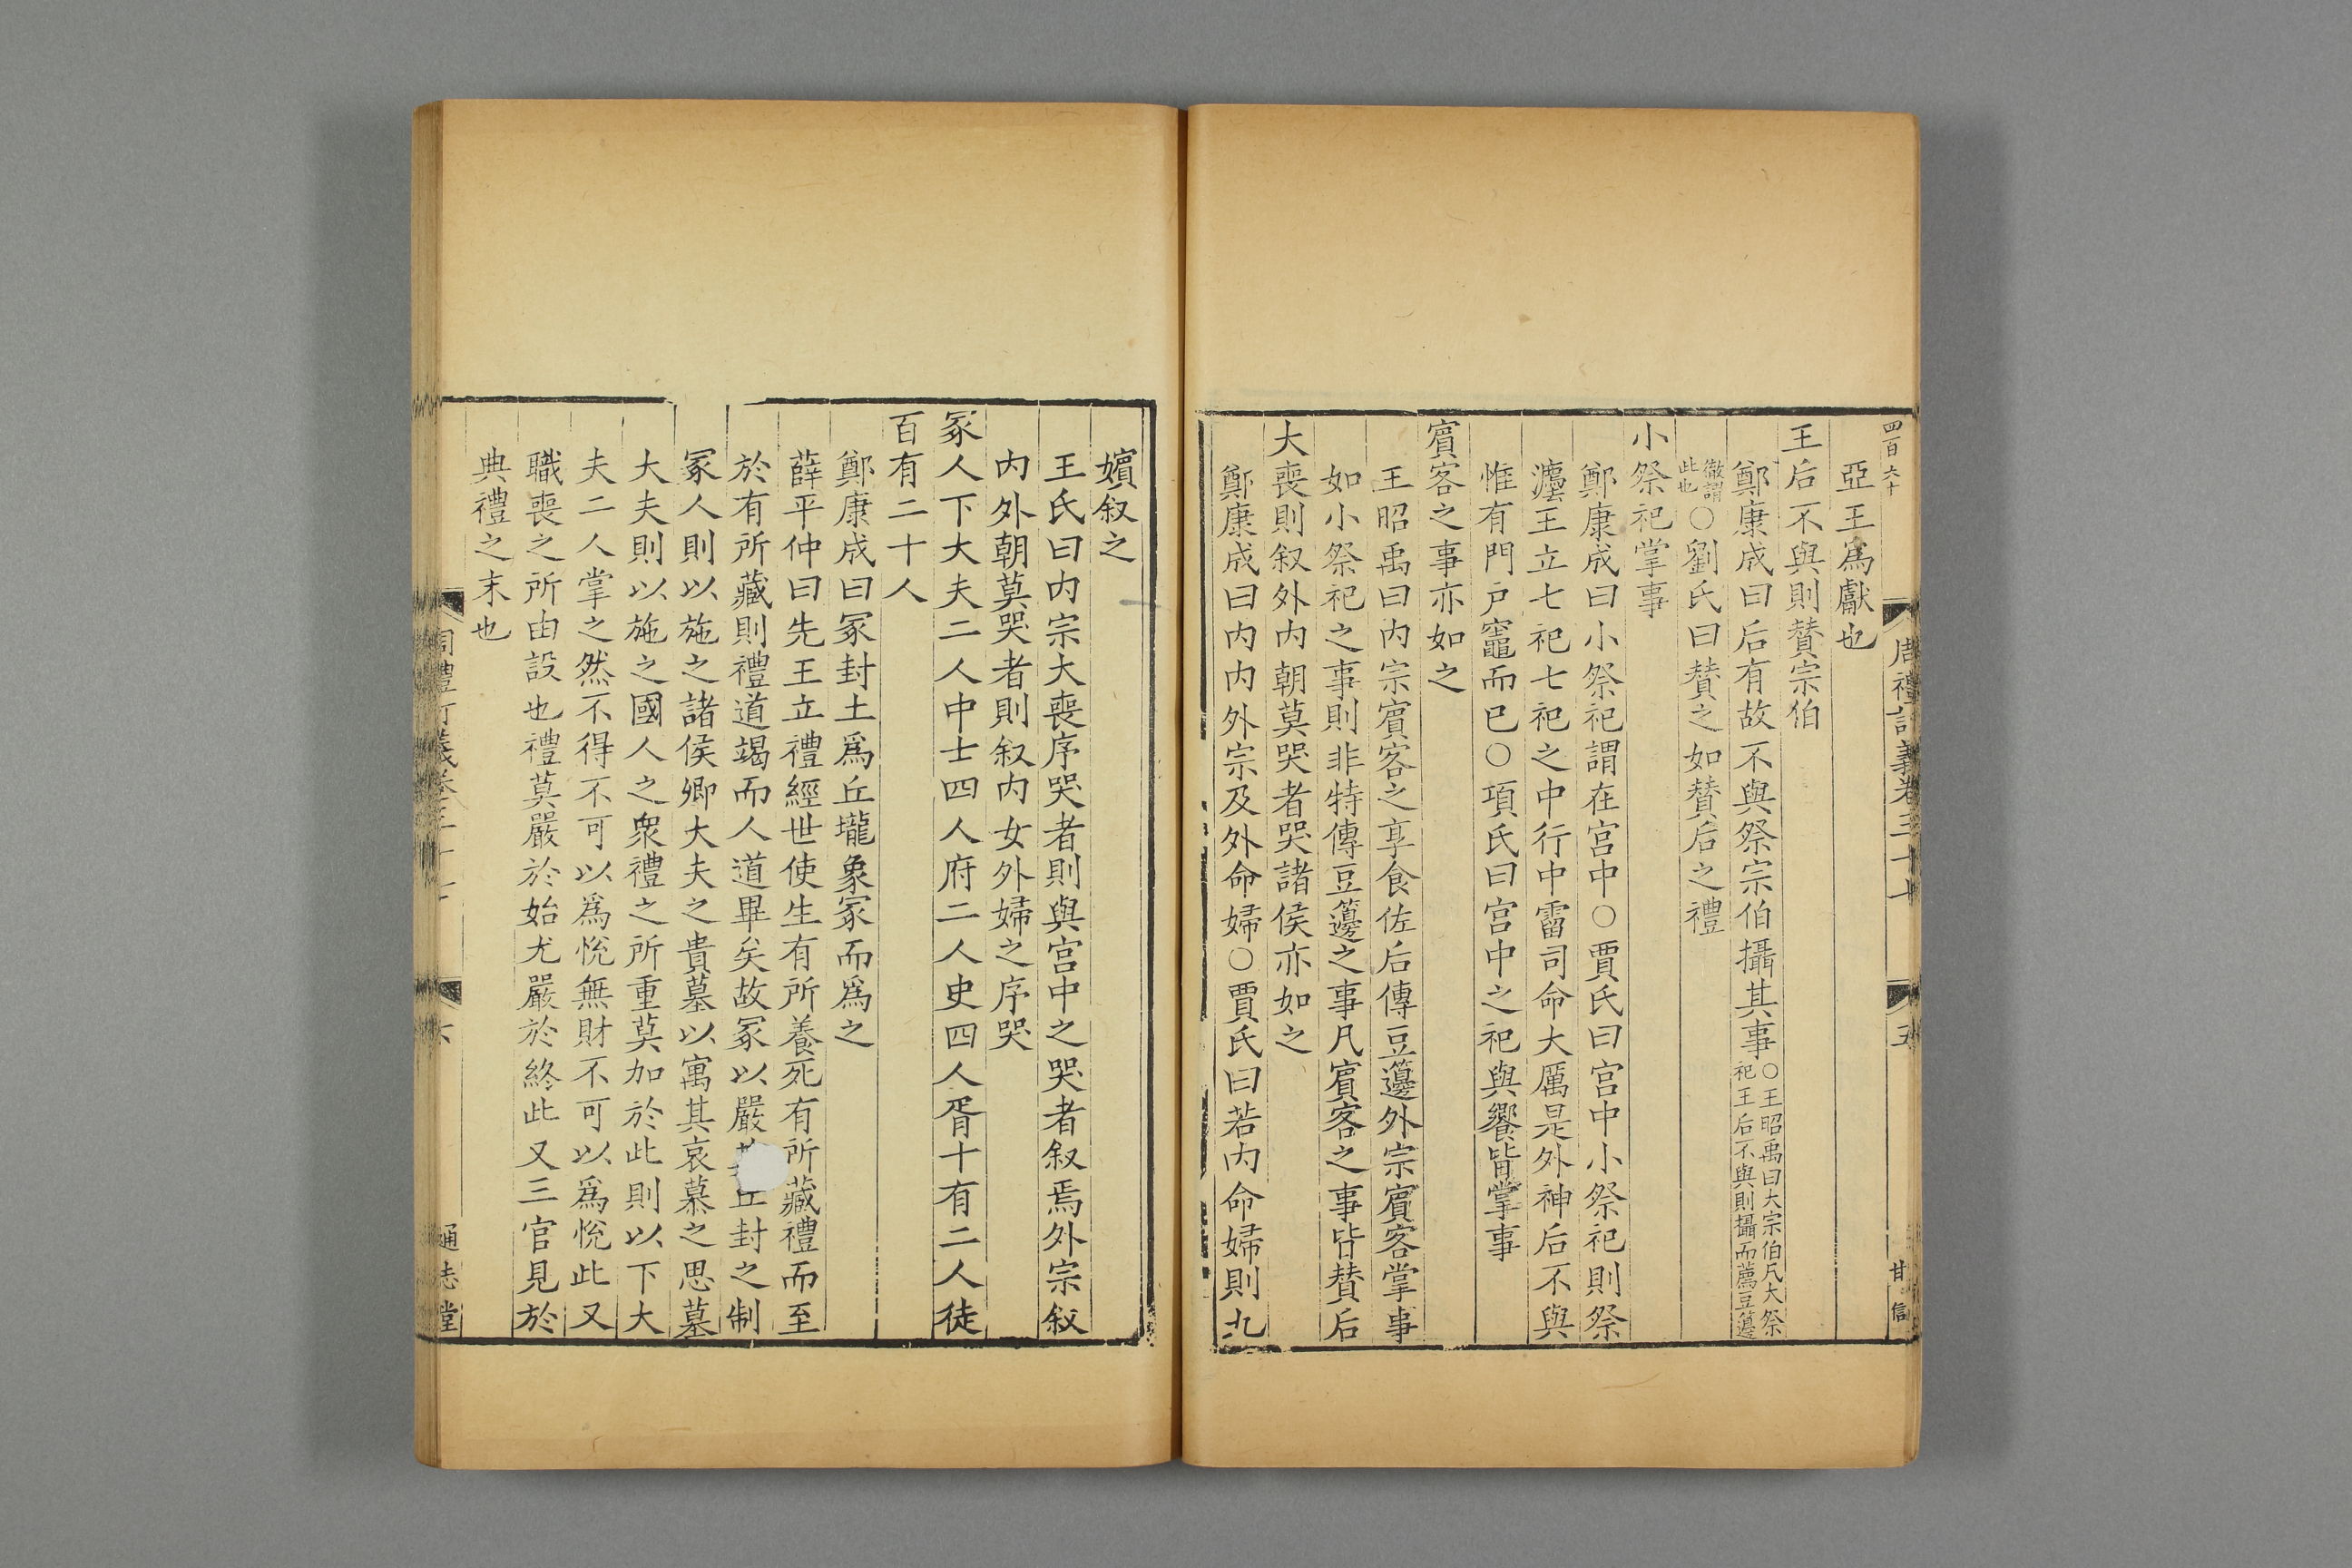 四百六十
周禮訂義卷三十七
五
甘信
亞王爲獻也
王后不與則贊宗伯
鄭康成曰后有故不與祭宗伯攝其事○王昭禹曰大宗伯凡大祭
祀王后不與則攝而薦豆籩
徹謂
此也○劉氏曰贊之如贊后之禮
小祭祀掌事
鄭康成曰小祭祀謂在宫中○賈氏曰宫中小祭祀則祭
灋王立七祀七祀之中行中霤司命大厲是外神后不與
惟有門戸竈而已○項氏曰宫中之祀與饗皆掌事
賓客之事亦如之
王昭禹曰内宗賓客之享食佐后傳豆籩外宗賓客掌事
如小祭祀之事則非特傳豆籩之事凡賓客之事皆贊后
大喪則叙外内朝莫哭者哭諸侯亦如之
鄭康成曰内内外宗及外命婦○賈氏曰若内命婦則九
嬪叙之
王氏曰内宗大喪序哭者則與宫中之哭者叙焉外宗叙
内外朝莫哭者則叙内女外婦之序哭
冢人下大夫二人中士四人府二人史四人胥十有二人徒
百有二十人
鄭康成曰冢封土爲丘壠象冢而爲之
薛平仲曰先王立禮經世使生有所養死有所藏禮而至
於有所藏則禮道竭而人道畢矣故冢以嚴丘封之制
冢人則以施之諸侯卿大夫之貴墓以寓其哀慕之思墓
大夫則以施之國人之衆禮之所重莫加於此則以下大
夫二人掌之然不得不可以爲悅無財不可以爲悅此又
職喪之所由設也禮莫嚴於始尤嚴於終此又三官見於
典禮之末也
周禮訂義卷三十七
六
通志堂